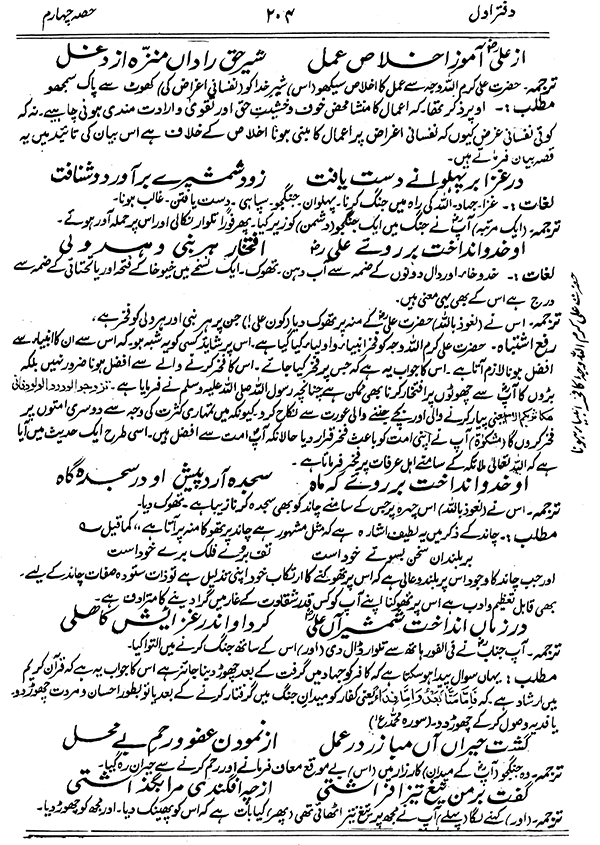 دفتر اول ۲۰۴ حصہ چہارم
از علیؓ آموز اخلاص عمل شیر حق را داں منزّہ از دغل
ترجمہ۔ حضرت علی کرم اللہ وجہہ سے عمل کا اخلاص سیکھو (اس) شیر خدا کو (نفسانی اغراض کی) کھوٹ سے پاک سمجھو
مطلب:۔ اوپر ذکر تھا کہ اعمال کا منشا محض خوف و خشیت حق اور تقویٰ و ارادت مندی ہونی چاہیے۔ نہ کہ
کوئی نفسانی غرض کیوں کہ نفسانی اغراض پر اعمال کا مبنی ہونا اخلاص کے خلاف ہے اس بیان کی تائید میں یہ
قصہ بیان فرماتے ہیں۔
در غزا بر پہلوانے دست یافت زود شمشیرے برآورد و شتافت
لغات:۔ غزا۔ جہاد۔ اللہ کی راہ میں جنگ کرنا۔ پہلوان۔ جنگجو۔ سپاہی۔ دست یافتن۔ غالب ہونا۔
ترجمہ۔ (ایک مرتبہ) آپؓ نے جنگ میں ایک جنگجو (دشمن) کو زیر کیا۔ پھر فوراً تلوار نکالی اور اس پر حملہ آور ہوئے۔
او خدو انداخت بر روئے علیؓ افتخار ہر نبی و ہر ولی
لغات:۔ خدو خاء اور دال دونوں کے ضمہ سے آب دہن۔ تھوک۔ ایک نسخے میں خیو خا کے فتحہ اور یا تحتانی کے ضمہ سے
درج ہے اس کے بھی یہی معنی ہیں۔
ترجمہ۔ اس نے (نعوذ باللہ) حضرت علیؓ کے منہ پر تھوک دیا (کون علی!) جن پر ہر نبی اور ہر ولی کو فخر ہے،
رفع اشتباہ۔ حضرت علی کرم اللہ وجہہ کو فخر انبیاء و اولیاء کہا گیا ہے۔ اس پر شاید کسی کو یہ شبہ ہو۔ کہ اس سے ان کا انبیاء سے
افضل ہونا لازم آتا ہے۔ اس کا جواب یہ ہے کہ جس پر فخر کیا جائے۔ اس کا فخر کرنے والے سے افضل ہونا ضرور نہیں بلکہ
بڑوں کا آپ سے چھوٹوں پر افتخار کرنا بھی ممکن ہے چنانچہ رسول اللہ صلی اللہ علیہ وسلم نے فرمایا ہے۔ تزوجوا الودود الولود فانی
مکاثر بکم الامم یعنی پیار کرنے والی اور بچے جننے والی عورت سے نکاح کرو۔ کیونکہ میں تمہاری کثرت کی وجہ سے دوسری امتوں پر
فخر کروں گا (مشکوٰۃ) آپ نے اپنی امت کو باعث فخر قرار دیا حالانکہ آپ امت سے افضل ہیں۔ اسی طرح ایک حدیث میں آیا
ہے کہ اللہ تعالیٰ ملائکہ کے سامنے اہل عرفات پر فخر فرماتا ہے۔
او خدو انداخت بر روئے کہ ماہ سجدہ آرد پیش او در سجدہ گاہ
ترجمہ۔ اس نے (نعوذ باللہ) اس چہرہ پر جس کے سامنے چاند کو بھی سجدہ کرنا زیبا ہے۔ تھوک دیا۔
مطلب:۔ چاند کے ذکر میں یہ لطیف اشارہ ہے کہ مثل مشہور ہے چاند پر تھوکا منہ پر آتا ہے،، کما قیل ؎
بر بلنداں سخن بسوئے خود است تف بروئے فلک برے خود است
اور جب چاند کا وجود اس پر بلند و عالی ہے کہ اس پر تھوکنے کا ارتکاب خود اپنی تذلیل ہے تو ذات ستودہ صفات چاند کے لیے۔
بھی قابل تعظیم و ادب ہے اس پر تھوکنا اپنے آپ کو کس قدر شقاوت کے غار میں گرا دینے کا مترادف ہے۔
در زماں انداخت شمشیر آں علیؓ کرد او اندر غزایش کاہلی
ترجمہ۔ آپ جنابؓ نے فی الفور ہاتھ سے تلوار ڈال دی (اور) اس کے ساتھ جنگ کرنے میں التوا کیا۔
مطلب:۔ یہاں سوال پیدا ہو سکتا ہے کہ کافر کو جہاد میں گرفت کے بعد چھوڑ دینا جائز ہے اس کا جواب یہ ہے کہ قرآن کریم
میں ارشاد ہے۔ کہ فَإِمَّا مَنًّا بَعْدُ وَإِمَّا فِدَاءً یعنی کفار کو میدان جنگ میں گرفتار کرنے کے بعد یا تو بطور احسان و مروت چھوڑ دو۔
یا فدیہ وصول کر کے چھوڑ دو۔ (سورہ محمدؐ ع۱)
گشت حیراں آں مبارز در عمل از نمودن عفو و رحم بے محل
ترجمہ۔ وہ جنگجو (آپؓ کے) میدان) کارزار میں (اس) بے موقع معاف فرمانے اور رحم کرنے سے حیران رہ گیا۔
گفت بر من تیغ تیز افراشتی از چہ افگندی مرا بگذاشتی
ترجمہ۔ (اور) کہنے لگا (پہلے) آپؓ نے مجھ پر تیغ تیز اٹھائی تھی (پھر) کیا بات ہے کہ اس کو پھینک دیا۔ اور مجھ کو چھوڑ دیا۔
حضرت علی کرم اللہ وجہہ کا فخر انبیاء ہونا